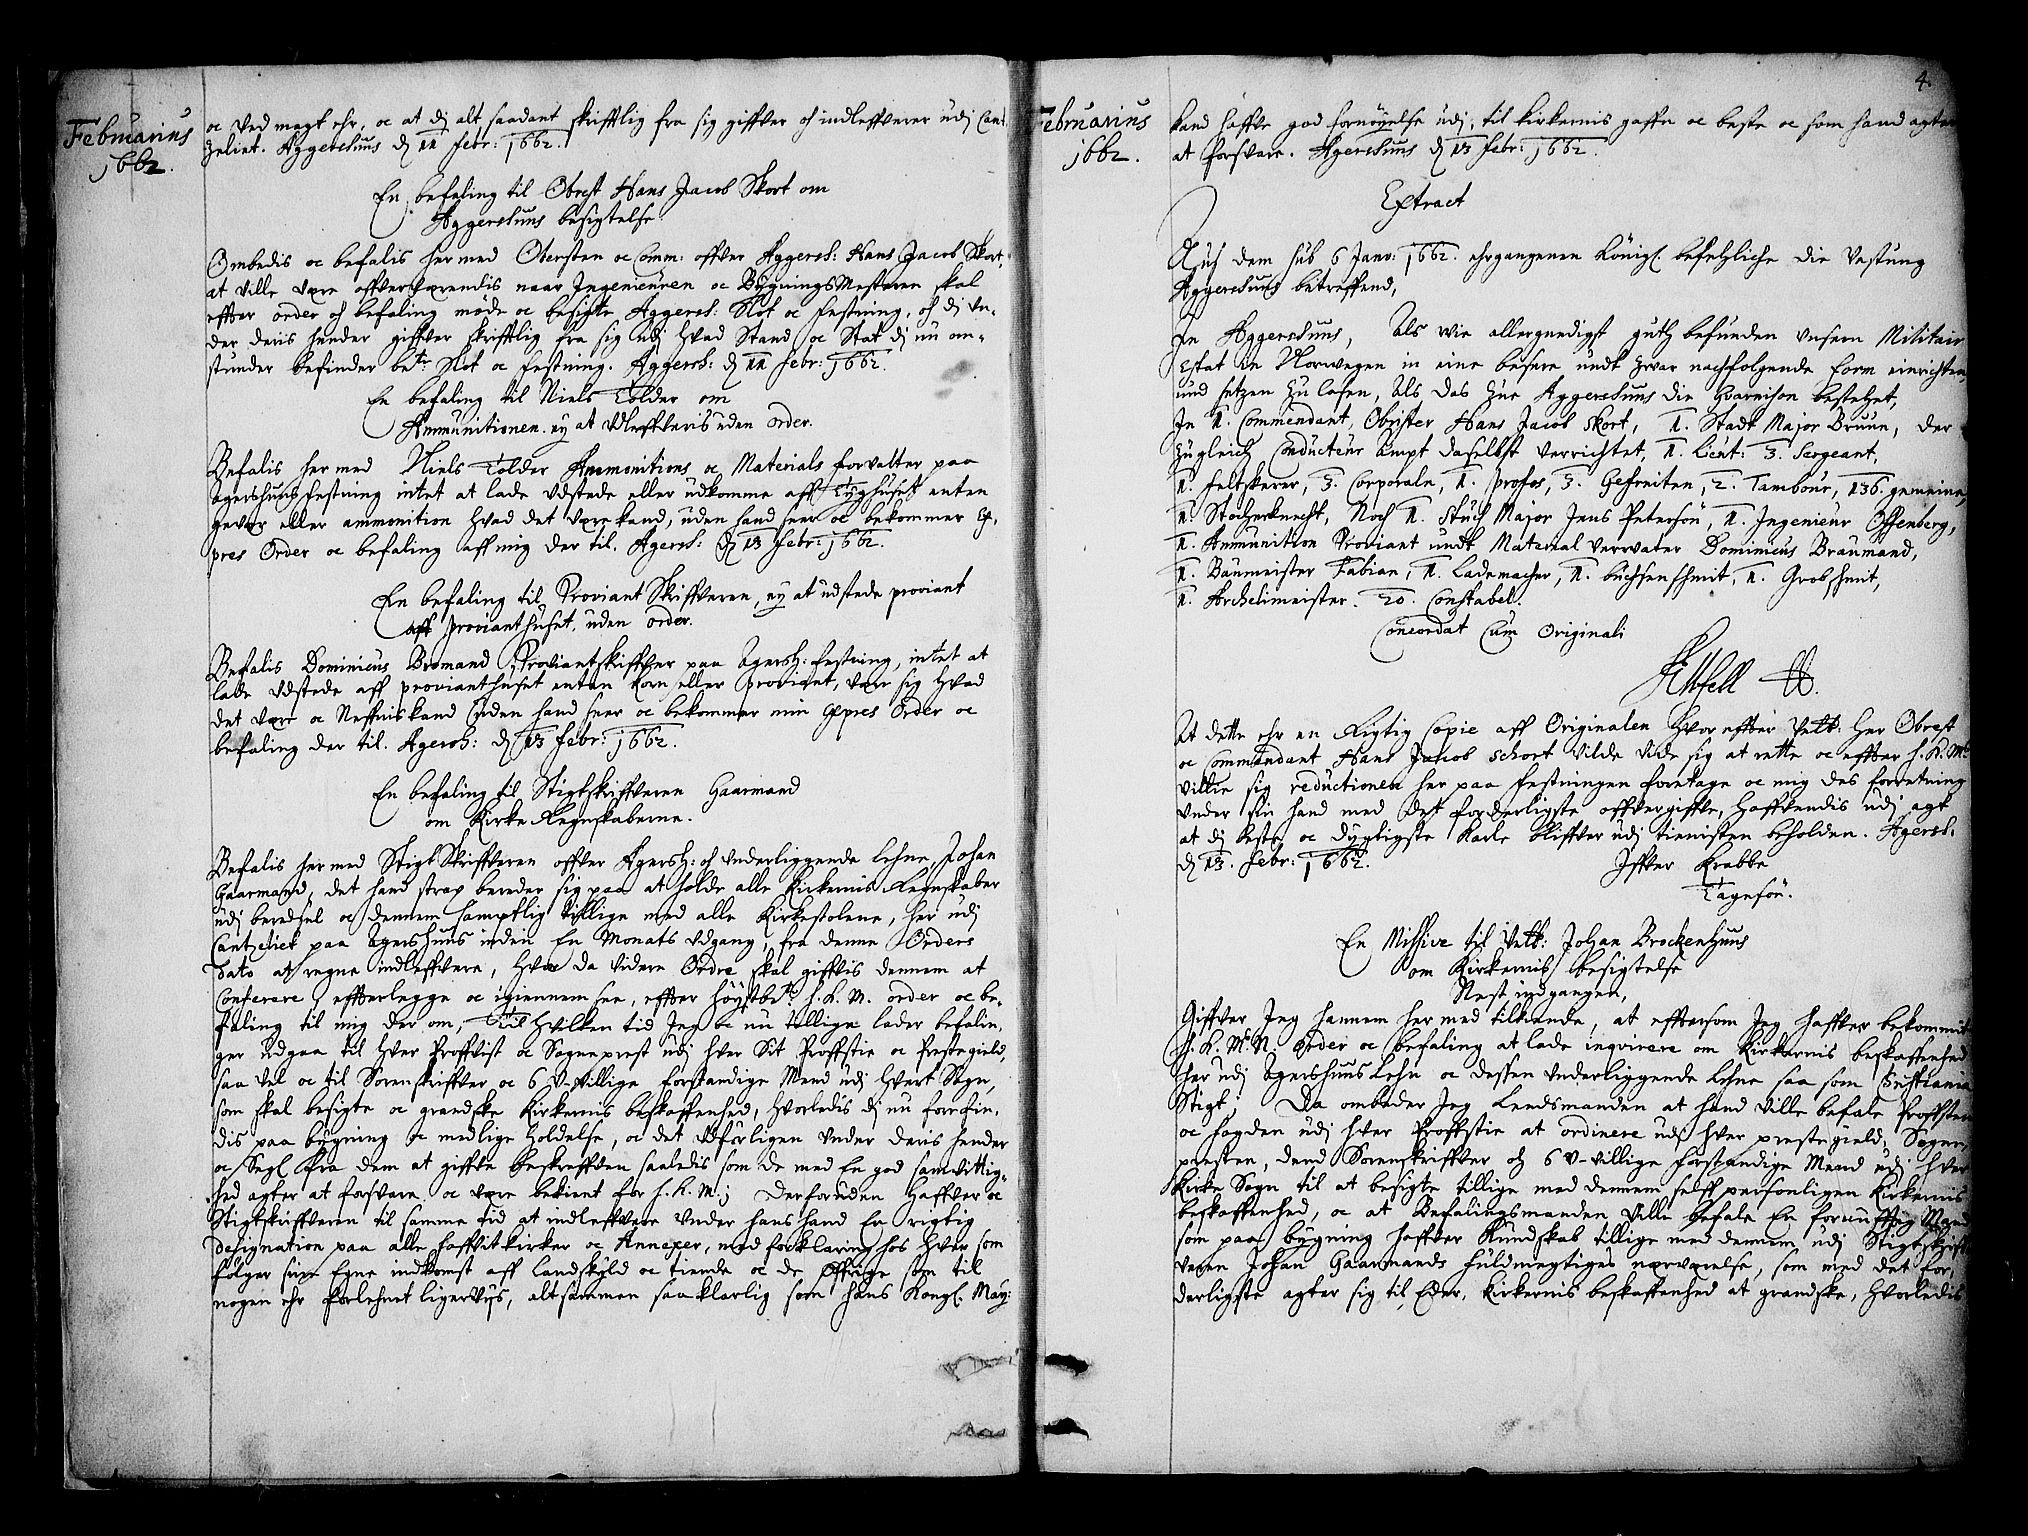 Februarius
1662.
oc ved magt ehr, oc at dj alt saadant skrifftlig fra sig giffver och indleffverer udj Cant-
zeliet. Aggershuus d 11 Febr: 1662.
En befaling til Obrest Hans Jacob Skort om
Aggershuus besigtelse.
Ombedis oc befalis hermed Obersten oc Comm: offver Aggersh: Hans Jacob Skort,
at ville være offverværendis naar Ingenieuren oc BygningsMesteren skal
effter order och befaling møde oc besigte Aggersh: Slot oc Festning, och dj un-
der deris hender giffver skrifftlig fra sig udj hvad Stand oc Stat dj nu om-
stunder befinder bete Slot oc Festning. Aggersh: d 11 Febr: 1662.
En befaling til Niels Tolder om
Ammunitionen ey at Udleffveris uden order.
Befalis hermed Niels Tolder Ammonitions oc Materials forvalter paa
Agershuus Festning intet at lade udstede eller udkomme aff Tyghuset enten
gevær eller ammonition hvad det være kand, uden hand seer oc bekommer Ex-
pres Order oc befaling aff mig der til. Agersh: d 13 Febr: 1662.
En befaling til Proviant Skriffveren, ey at udstede proviant
aff provianthuset, uden order.
Befalis Dominicus Bromand Proviantskriffver paa Agersh: Festning, intet at
lade udstede aff provianthuset enten korn eller proviant, være sig hvad
det være oc Neffnis kand uden hand seer oc bekommer min Expres Order oc
befaling der til. Agersh: d 13 Febr: 1662.
En befaling til Stigtskriffveren Gaarmand
om Kirke Regnskaberne.
Befalis hermed StigtSkriffveren offver Agersh: och underliggende Lehne, Johan
Gaarmand, det hand strax bereder sig paa at holde alle Kirkernis Regnskaber
udj beredsel oc dennem samptlig tillige med alle Kirkestolene, her udj
Cantzeliet paa Agershuus inden En Monats udgang, fra denne Orders
Dato at regne indleffvere, hvor da videre Ordre skal giffvis dennem at
Conferere, effterlegge oc igiennemsee, effter høystbte: H.K.M. order oc be-
faling til mig der om, Til hvilken tid Jeg oc nu tillige lader befalin-
ger udgaa til hver Proffvist oc Sogneprest udj hver Sit Proffstie oc Prestegield,
saa vel oc til Sorenskriffver oc 6 U-villige forstandige Mend udj hvert Sogn,
som skal besigte oc grandske Kirkernis beskaffenhed, hvorledis dj nu forefin-
dis paa bygning oc medlige holdelse, oc det udførligen under deris hender
oc Segl fra dem at giffve beskreffven saaledis som de med En god samvittig-
hed agter at forsvare oc være bekient for H.K.M.; Derforuden haffver oc
Stigtskriffveren til samme tid at indleffvere under hans hand En rigtig
designation paa alle Hoffvitkirker oc Annexer, med forklaring hos hver som
følger sine Egne indkomst aff landskyld oc tiende oc de Øffrige som til
nogen ehr forlehnet ligervijs, alt sammen saa klarlig som Hans Kongl: May:
4.
Februarius
1662.
kand haffve god fornøyelse udj, til Kirkernis gaffn oc beste oc som hand agter
at forsvare. Agershuus d 13 Febr: 1662.
Extract
Auss dem sub 6 Janr: 1662. ehrgangenen Königl. befehlich die Vestung
Aggershuus betreffend,
In Aggershuus, Als wir allergnedigst guth befunden unsern Militair
Estat in Norwegen in eine bessere undt zwar nachfolgende form einrichten
und setzen zu lassen, Als das zur Aggershuus die Guarnison bestehet,
In 1. Commendant, Obrister Hans Jacob Skort, 1. Stadt Major Bruun, der
zugleich Conducteur Ampt daselbst verrichtet, 1. Lieut: 3. Sergeant,
1. Feltskerer, 3. Corporale, 1. Profos, 3. Gefreiten, 2. Tambour, 136. gemeine,
1. Stockerknecht, Noch 1. Stuck Major Jens Peterson, 1. Ingenieur Offenberg,
1. Ammunition Proviant undt Material Verwater Dominicus Braumand,
1. Baumeister Fabian, 1. Lademacher, 1. buchsenschmit, 1. Grobschmit,
1. Archelimeister. 20. Constabel.
Concordat Cum Originali
At dette ehr en Rigtig Copie aff Originalen hvor effter Velb: Her Obrest
oc Commandant Hans Jacob Schort vilde vide sig at rette oc effter H.K.Ms
villie sig reductionen her paa Festningen foretage oc mig des forretning
under sin hand med det forderligste offvergiffve, haffvendis udj agt
at dj beste oc dygtigste Karle bliffver udj tienisten beholden. Agersh:
d 13. Febr: 1662.
Iffver Krabbe
Tagesøn.
En Missive til Velb: Johan Brockenhuus
om Kirkernis besigtelse
Nest indgangen,
Giffver Jeg hannem her med tilkiende, at effttersom Jeg haffver bekommit
H.K.M.N. Order oc befaling at lade inqvirere om Kirkernis beskaffenhed
her udj Agershuus Lehn oc dessen underliggende Lehne saa som Christiania
Stigt; Da ombeder Jeg Lensmanden at hand ville befale Proffsten
oc fogden udj hver Proffstie at ordinere udj hver prestegield, Sogne-
presten, dend Sorenskriffver och 6 U-villige forstandige Mend udj hver
Kirke Sogn til at besigte tillige med dennem selff personligen Kirkernis
beskaffenhed, oc at Befalingsmanden ville befale En fornufftig Mand
som paa bygning haffver Kundskab tillige med dennem udj Stigtskriff-
veren Johan Gaarmands fuldmegtiges nærværelse, som med det for-
derligste agter sig til Eder, Kirkernis beskaffenhed at grandske, hvorledis